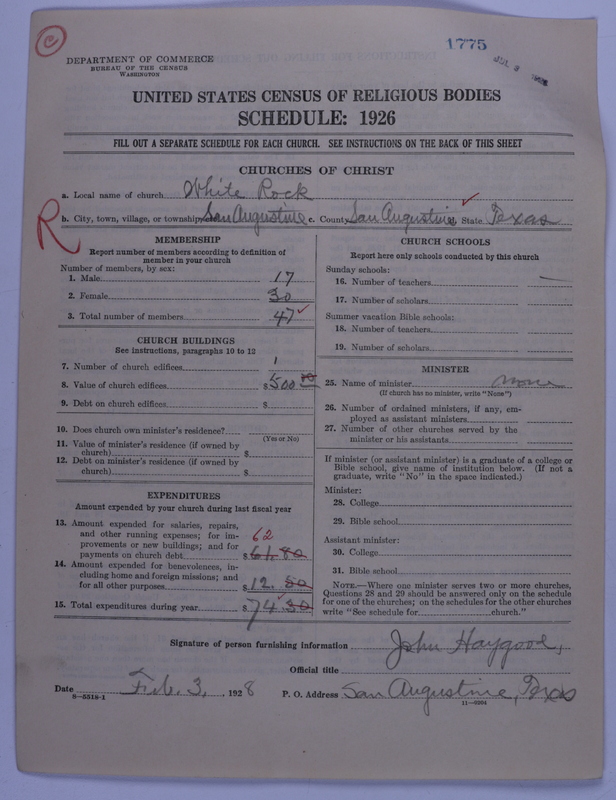 C
1775
JUL 9 1928
DEPARTMENT OF COMMERCE
BUREAU OF THE CENSUS
WASHINGTON
UNITED STATES CENSUS OF RELIGIOUS BODIES
SCHEDULE: 1926
FILL OUT A SEPARATE SCHEDULE FOR EACH CHURCH. SEE INSTRUCTIONS ON THE BACK OF THIS SHEET
CHURCHES OF CHRIST
a. Local name of church White Rock
R
b. City, town, village, or township San Augustine c. County San Augustine d. State Texas
MEMBERSHIP
Report number of members according to definition of
member in your church
Number of members, by sex:
1. Male 17
2. Female 30
3. Total number of members 47
CHURCH BUILDINGS
See instructions, paragraphs 10 to 12
7. Number of church edifices 1
8. Value of church edifices $ 500
9. Debt on church edifices $
10. Does church own minister's residence?
(Yes or No)
11. Value of minister's residence (if owned by
church) $
12. Debt on minister's residence (if owned by
church) $
EXPENDITURES
Amount expended by your church during last fiscal year
13. Amount expended for salaries, repairs,
and other running expenses; for im-
provements or new buildings; and for
payments on church debt $ 61.80
62
14. Amount expended for benevolences, in-
cluding home and foreign missions; and
for all other purposes $ 12.50
15. Total expenditures during year $ 74.30
CHURCH SCHOOLS
Report here only schools conducted by this church
Sunday schools:
16. Number of teachers
17. Number of scholars
Summer vacation Bible schools:
18. Number of teachers
19. Number of scholars
MINISTER
25. Name of minister none
(If church has no minister, write "None")
26. Number of ordained ministers, if any, em-
ployed as assistant ministers
27. Number of other churches served by the
minister or his assistants
If minister (or assistant minister) is a graduate of a college or
Bible school, give name of institution below. (If not a
graduate, write "No" in the space indicated.)
Minister:
28. College
29. Bible school
Assistant minister:
30. College
31. Bible school
NOTE.—Where one minister serves two or more churches,
Questions 28 and 29 should be answered only on the schedule
for one of the churches; on the schedules for the other churches
write "See schedule for church."
Signature of person furnishing information John Haygood,
Official title
Date Feb. 3, 1928 P. O. Address San Augustine, Texas
8—5518-1
11—9204